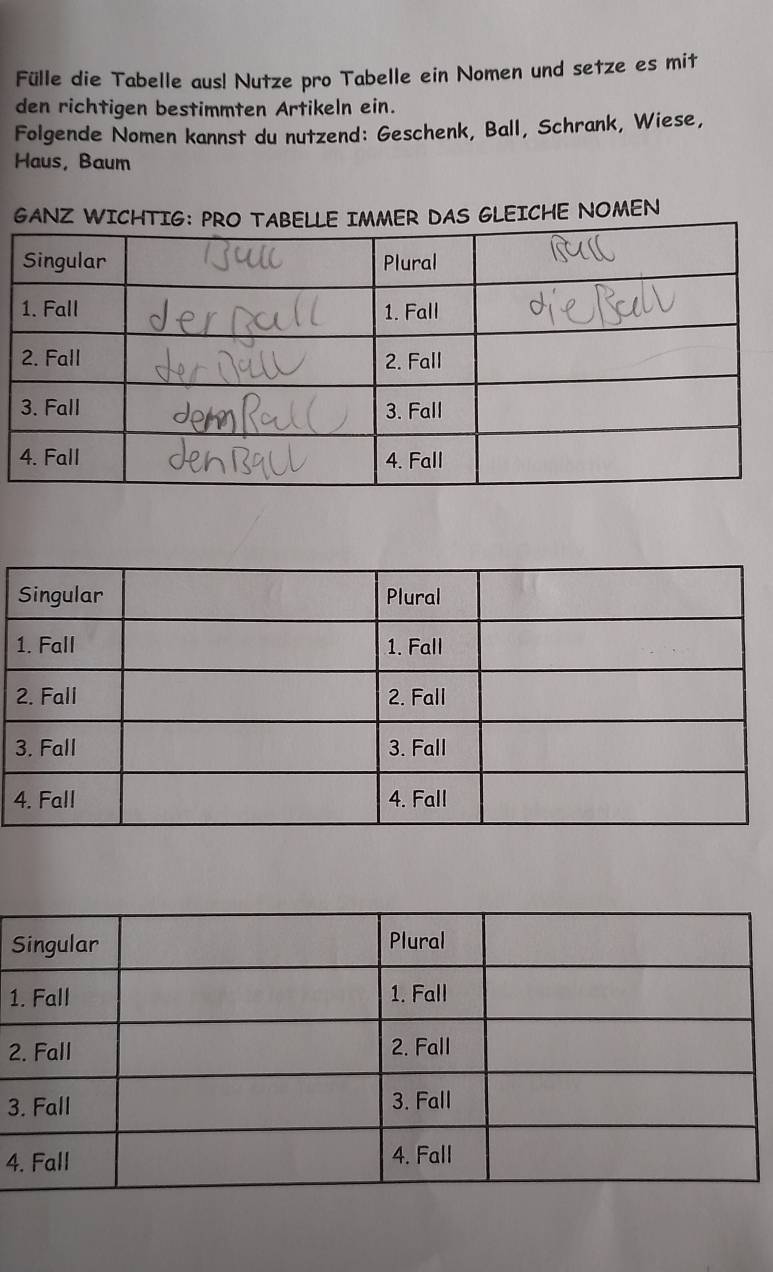 Fülle die Tabelle aus! Nutze pro Tabelle ein Nomen und setze es mit
den richtigen bestimmten Artikeln ein.
Folgende Nomen kannst du nutzend: Geschenk, Ball, Schrank, Wiese,
Haus, Baum
GANZ WICHTIG: PRO TABELLE IMMER DAS GLEICHE NOMEN
Singular Ball Plural Ball
1. Fall der Ball 1. Fall die Ball
2. Fall der Ball 2. Fall
3. Fall dem Ball 3. Fall
4. Fall den Ball 4. Fall
Singular Plural
1. Fall 1. Fall
2. Fall 2. Fall
3. Fall 3. Fall
4. Fall 4. Fall
Singular Plural
1. Fall 1. Fall
2. Fall 2. Fall
3. Fall 3. Fall
4. Fall 4. Fall